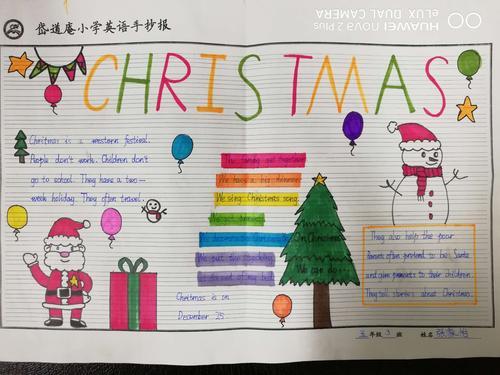 岱道庵小学英语手抄报
CHRISTMAS
Christmas is a western festival.
People don't work. Children don't
go to school. They have a two-
week holiday. They often travel.
The family get together
We have a big dinner.
We sing Christmas song.
On Christmas
We can do...
Christmas is on
December 25.
They also help the poor
parents often pretend to be Santa
and give presents to their children
They tell stories about Christmas.
五年级3班 姓名
HUAWEI nova 2 Plus
eLUX DUAL CAMERA